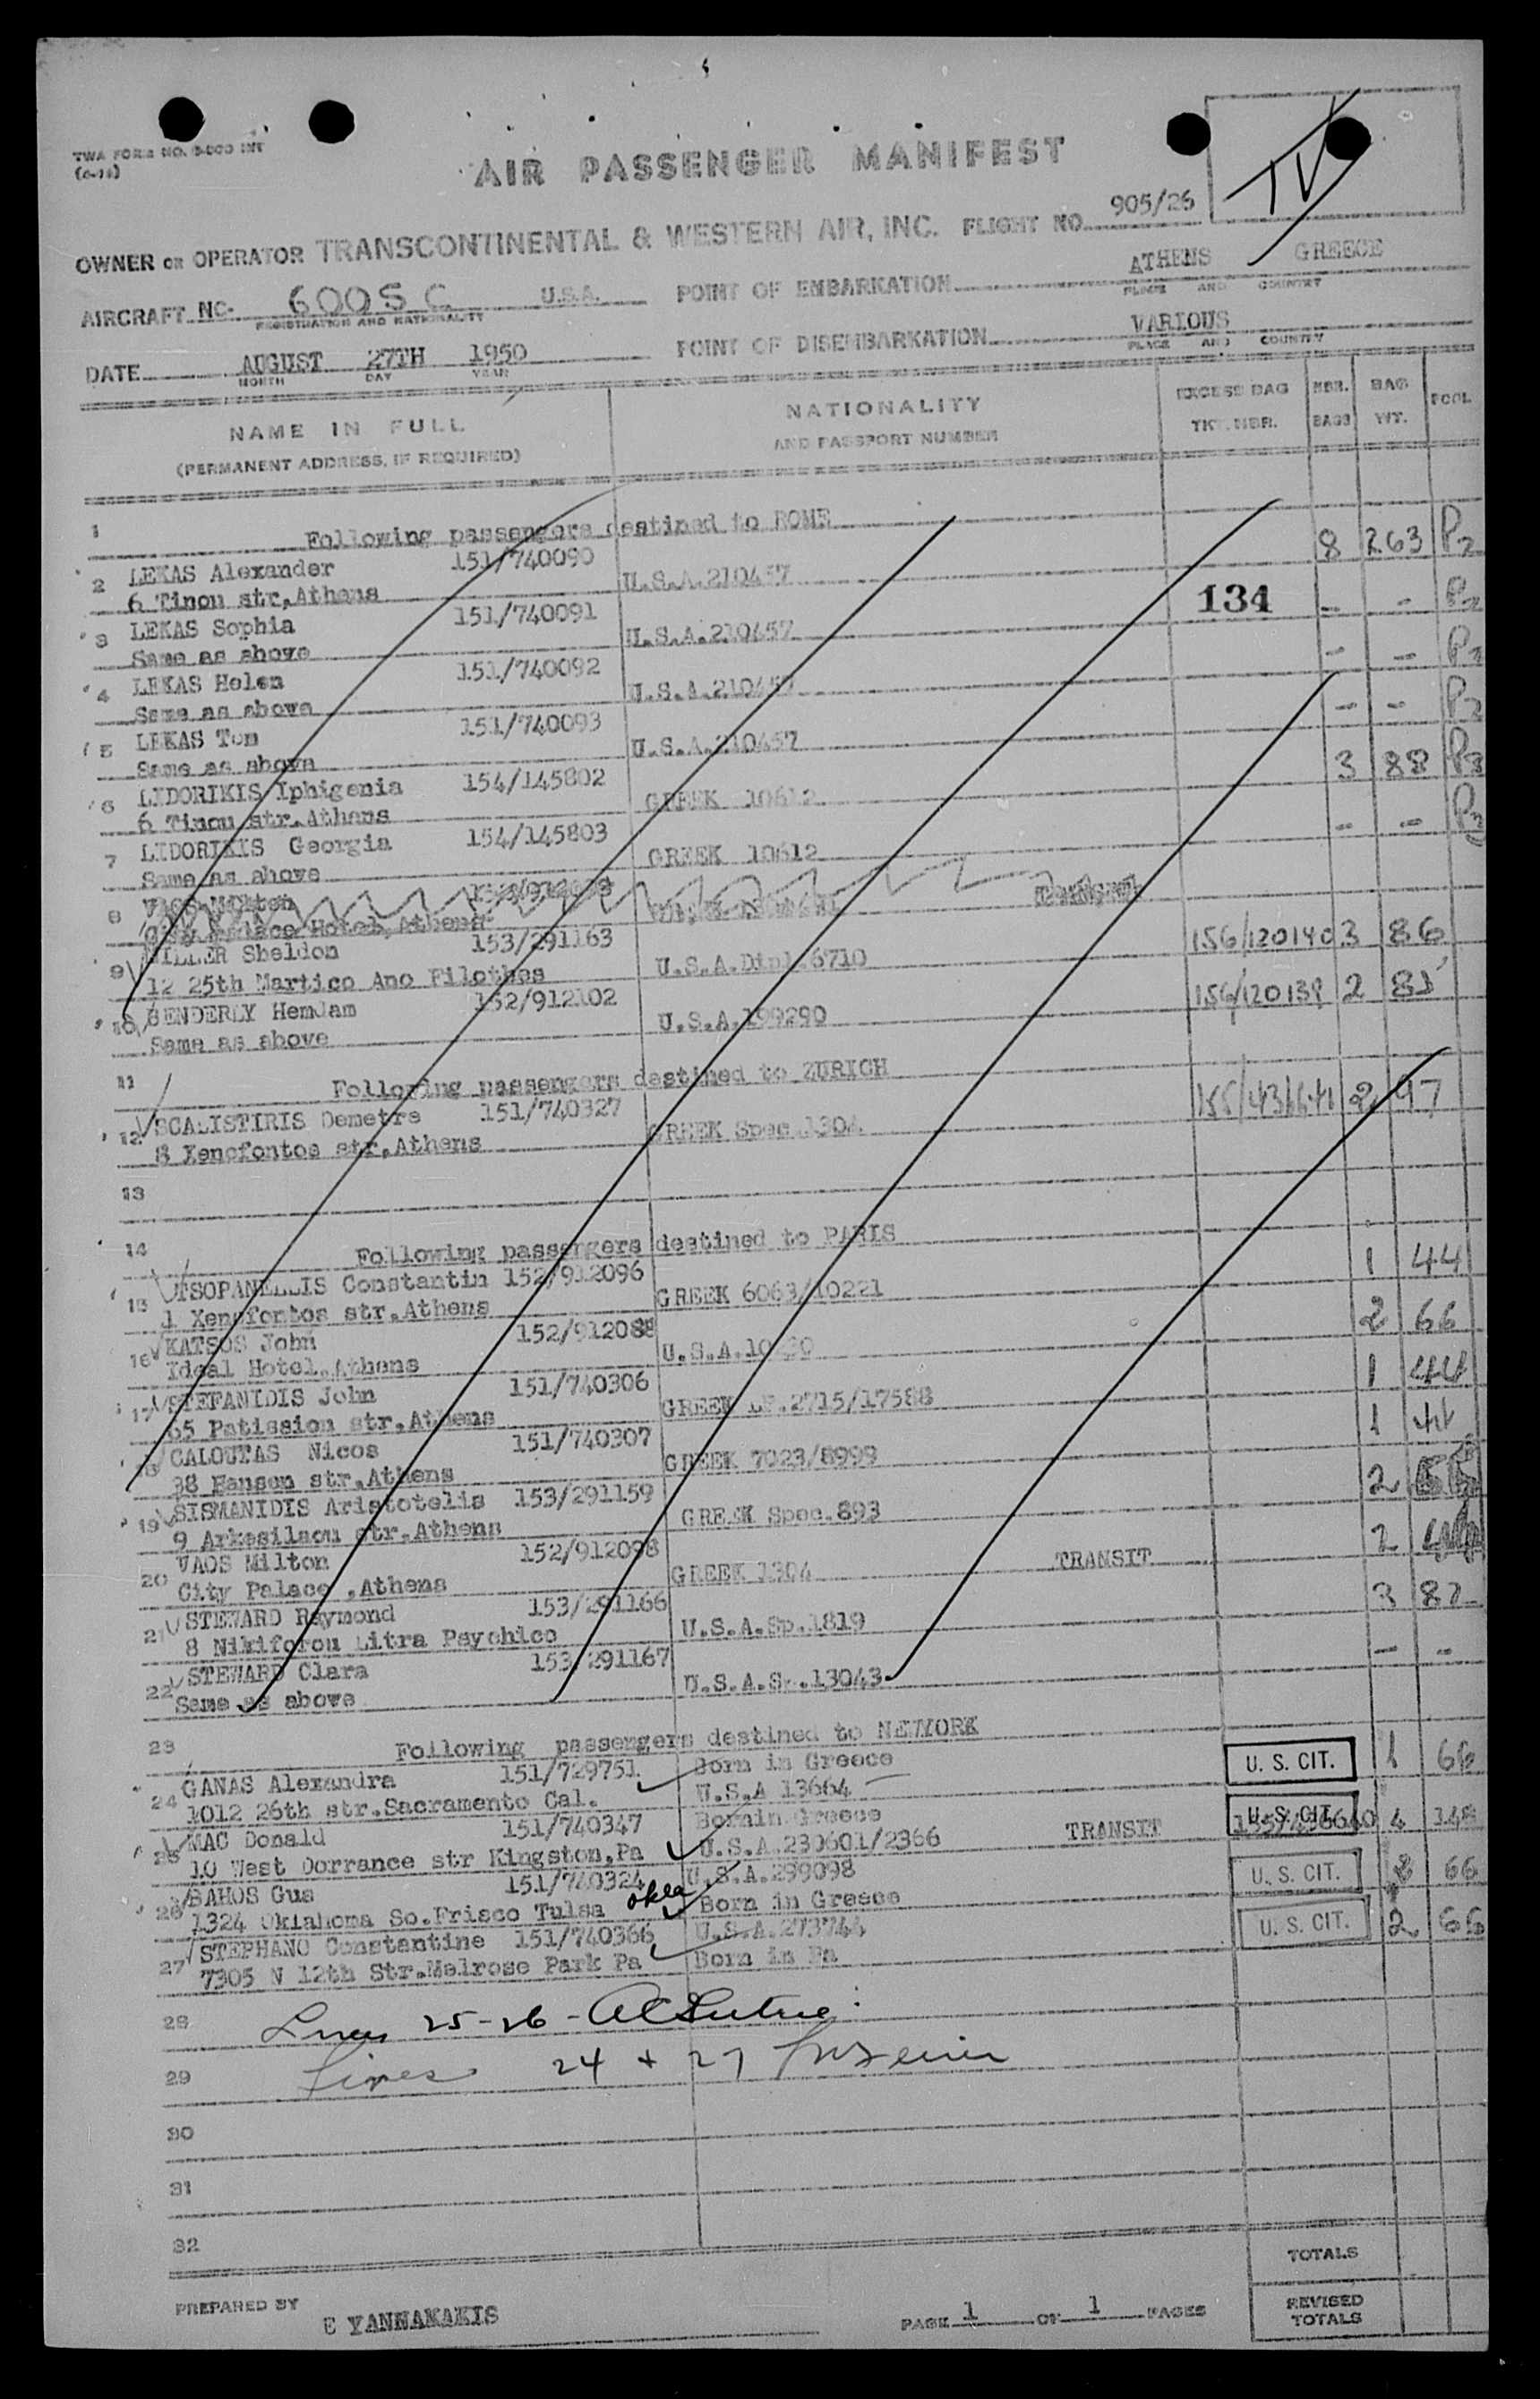 TWA FORM NO.
AIR PASSENGER MANIFEST
TV
OWNER OR OPERATOR TRANSCONTINENTAL & WESTERN AIR, INC. FLIGHT NO. 905/26
AIRCRAFT NC- 6005 C U.S.A. POINT OF EMBARKATION ATHENS GREECE
REGISTRATION AND NATIONALITY PLACE AND COUNTRY
DATE AUGUST 27TH 1950 POINT OF DISEMBARKATION VARIOUS
MONTH DAY YEAR PLACE AND COUNTRY
NAME IN FULL
(PERMANENT ADDRESS, IF REQUIRED)
NATIONALITY
AND PASSPORT NUMBER
EXCESS BAG
TKT. NBR.
NBR.
BAGS
BAG
WT.
POOL
1 Following passengers destined to ROME
2 LEKAS Alexander 151/740090 U.S.A.210457 8 263 P2
6 Tinou str,Athens
3 LEKAS Sophia 151/740091 U.S.A.210457 134 - - P2
Same as above
4 LEKAS Helen 151/740092 U.S.A.210457 - - P2
Same as above
5 LEKAS Tom 151/740093 U.S.A.210457 - - P2
Same as above
6 LIDORIKIS Iphigenia 154/145802 GREEK 10612 3 88 P3
6 Tinou str.Athens
7 LIDORIKIS Georgia 154/145803 GREEK 10612 - - P3
Same as above
8 VAOS Milton
City Palace Hotel,Athens
9 MILLER Sheldon 153/291163 U.S.A.Dipl.6710 156/120140 3 86
12 25th Martico Ano Filothes
10 BENDERLY Hemdam 152/912102 U.S.A.199290 156/120139 2 81
Same as above
11 Following passengers destined to ZURICH
12 SCALISTIRIS Demetre 151/740327 GREEK Spec.1304 2 97
8 Xenofontos str,Athens
13
14 Following passengers destined to PARIS
15 TSOPANELLIS Constantin 152/912096 GREEK 6063/10221 1 44
1 Xenofontos str.Athens
16 KATSOS John 152/912088 U.S.A. 2 66
Ideal Hotel.Athens
17 STEFANIDIS John 151/740306 GREEK LF.2715/17588 1 44
65 Patission str.Athens
18 CALOUTAS Nicos 151/740307 GREEK 7023/8999 1 44
38 Hansen str,Athens
19 SISMANIDIS Aristotelis 153/291159 GREEK Spec.893 2
9 Arkesilaou str.Athens
20 VAOS Milton 152/912098 GREEK 1304 TRANSIT 2
City Palace ,Athens
21 STEWARD Raymond 153/291166 U.S.A.Sp.1819 3 82
8 Nikiforou Litra Psychico
22 STEWARD Clara 153/291167 U.S.A.Sp.13043 - -
Same as above
23 Following passengers destined to NEWYORK
24 GANAS Alexandra 151/729751 Born in Greece U. S. CIT. 1 66
1012 26th str.Sacramento Cal. U.S.A 13664
25 MAC Donald 151/740347 Bornin Greece U. S. CIT. 4
10 West Dorrance str Kingston,Pa U.S.A.230601/2366 TRANSIT 155/436640
26 BAHOS Gus 151/740324 U.S.A.299098 U. S. CIT. 2 66
1324 Oklahoma So.Frisco Tulsa Okla Born in Greece
27 STEPHANO Constantine 151/740366 U.S.A.273744 U. S. CIT. 2 66
7305 N 12th Str.Melrose Park Pa Born in Pa
28 Lines 25-26 -
29 Lines 24 + 27
30
31
32
TOTALS
PREPARED BY E YANNAKAKIS PAGE 1 OF 1 PAGES
REVISED
TOTALS